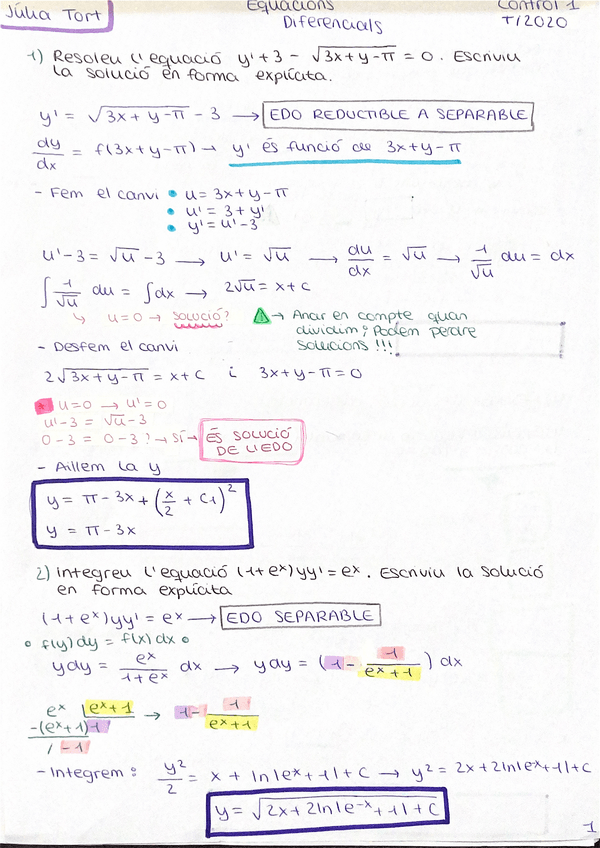 Júlia Tort
Equacions
Diferencials
Control 1
T/2020
1) Resoleu l'equació y' + 3 - √3x+y-π = 0. Escriviu
la solució en forma explícita.
y' = √3x+y-π - 3 → EDO REDUCTIBLE A SEPARABLE
dy/dx = f(3x+y-π) → y' és funció de 3x+y-π
- Fem el canvi • u = 3x+y-π
• u' = 3+y'
• y' = u'-3
u'-3 = √u - 3 → u' = √u → du/dx = √u → 1/√u du = dx
∫ 1/√u du = ∫dx → 2√u = x+c
↳ u=0 → solució?
⚠ → Anar en compte quan
dividim; Podem perdre
solucions !!!
- Desfem el canvi
2√3x+y-π = x+c i 3x+y-π=0
* u=0 → u'=0
u'-3 = √u-3
0-3 = 0-3? → Sí → ÉS SOLUCIÓ
DE L'EDO
- Aïllem la y
y = π - 3x + (x/2 + C1)²
y = π - 3x
2) Integreu l'equació (1+eˣ)yy' = eˣ. Escriviu la solució
en forma explícita
(1+eˣ)yy' = eˣ → EDO SEPARABLE
• f(y)dy = f(x)dx •
ydy = eˣ/1+eˣ dx → ydy = (1 - 1/eˣ+1) dx
eˣ |eˣ+1 → 1 - 1/eˣ+1
-(eˣ+1) 1
/ -1
- Integrem: y²/2 = x + ln|eˣ+1| + C → y² = 2x+2ln|eˣ+1|+C
y = √2x+2ln|e⁻ˣ+1|+C
1